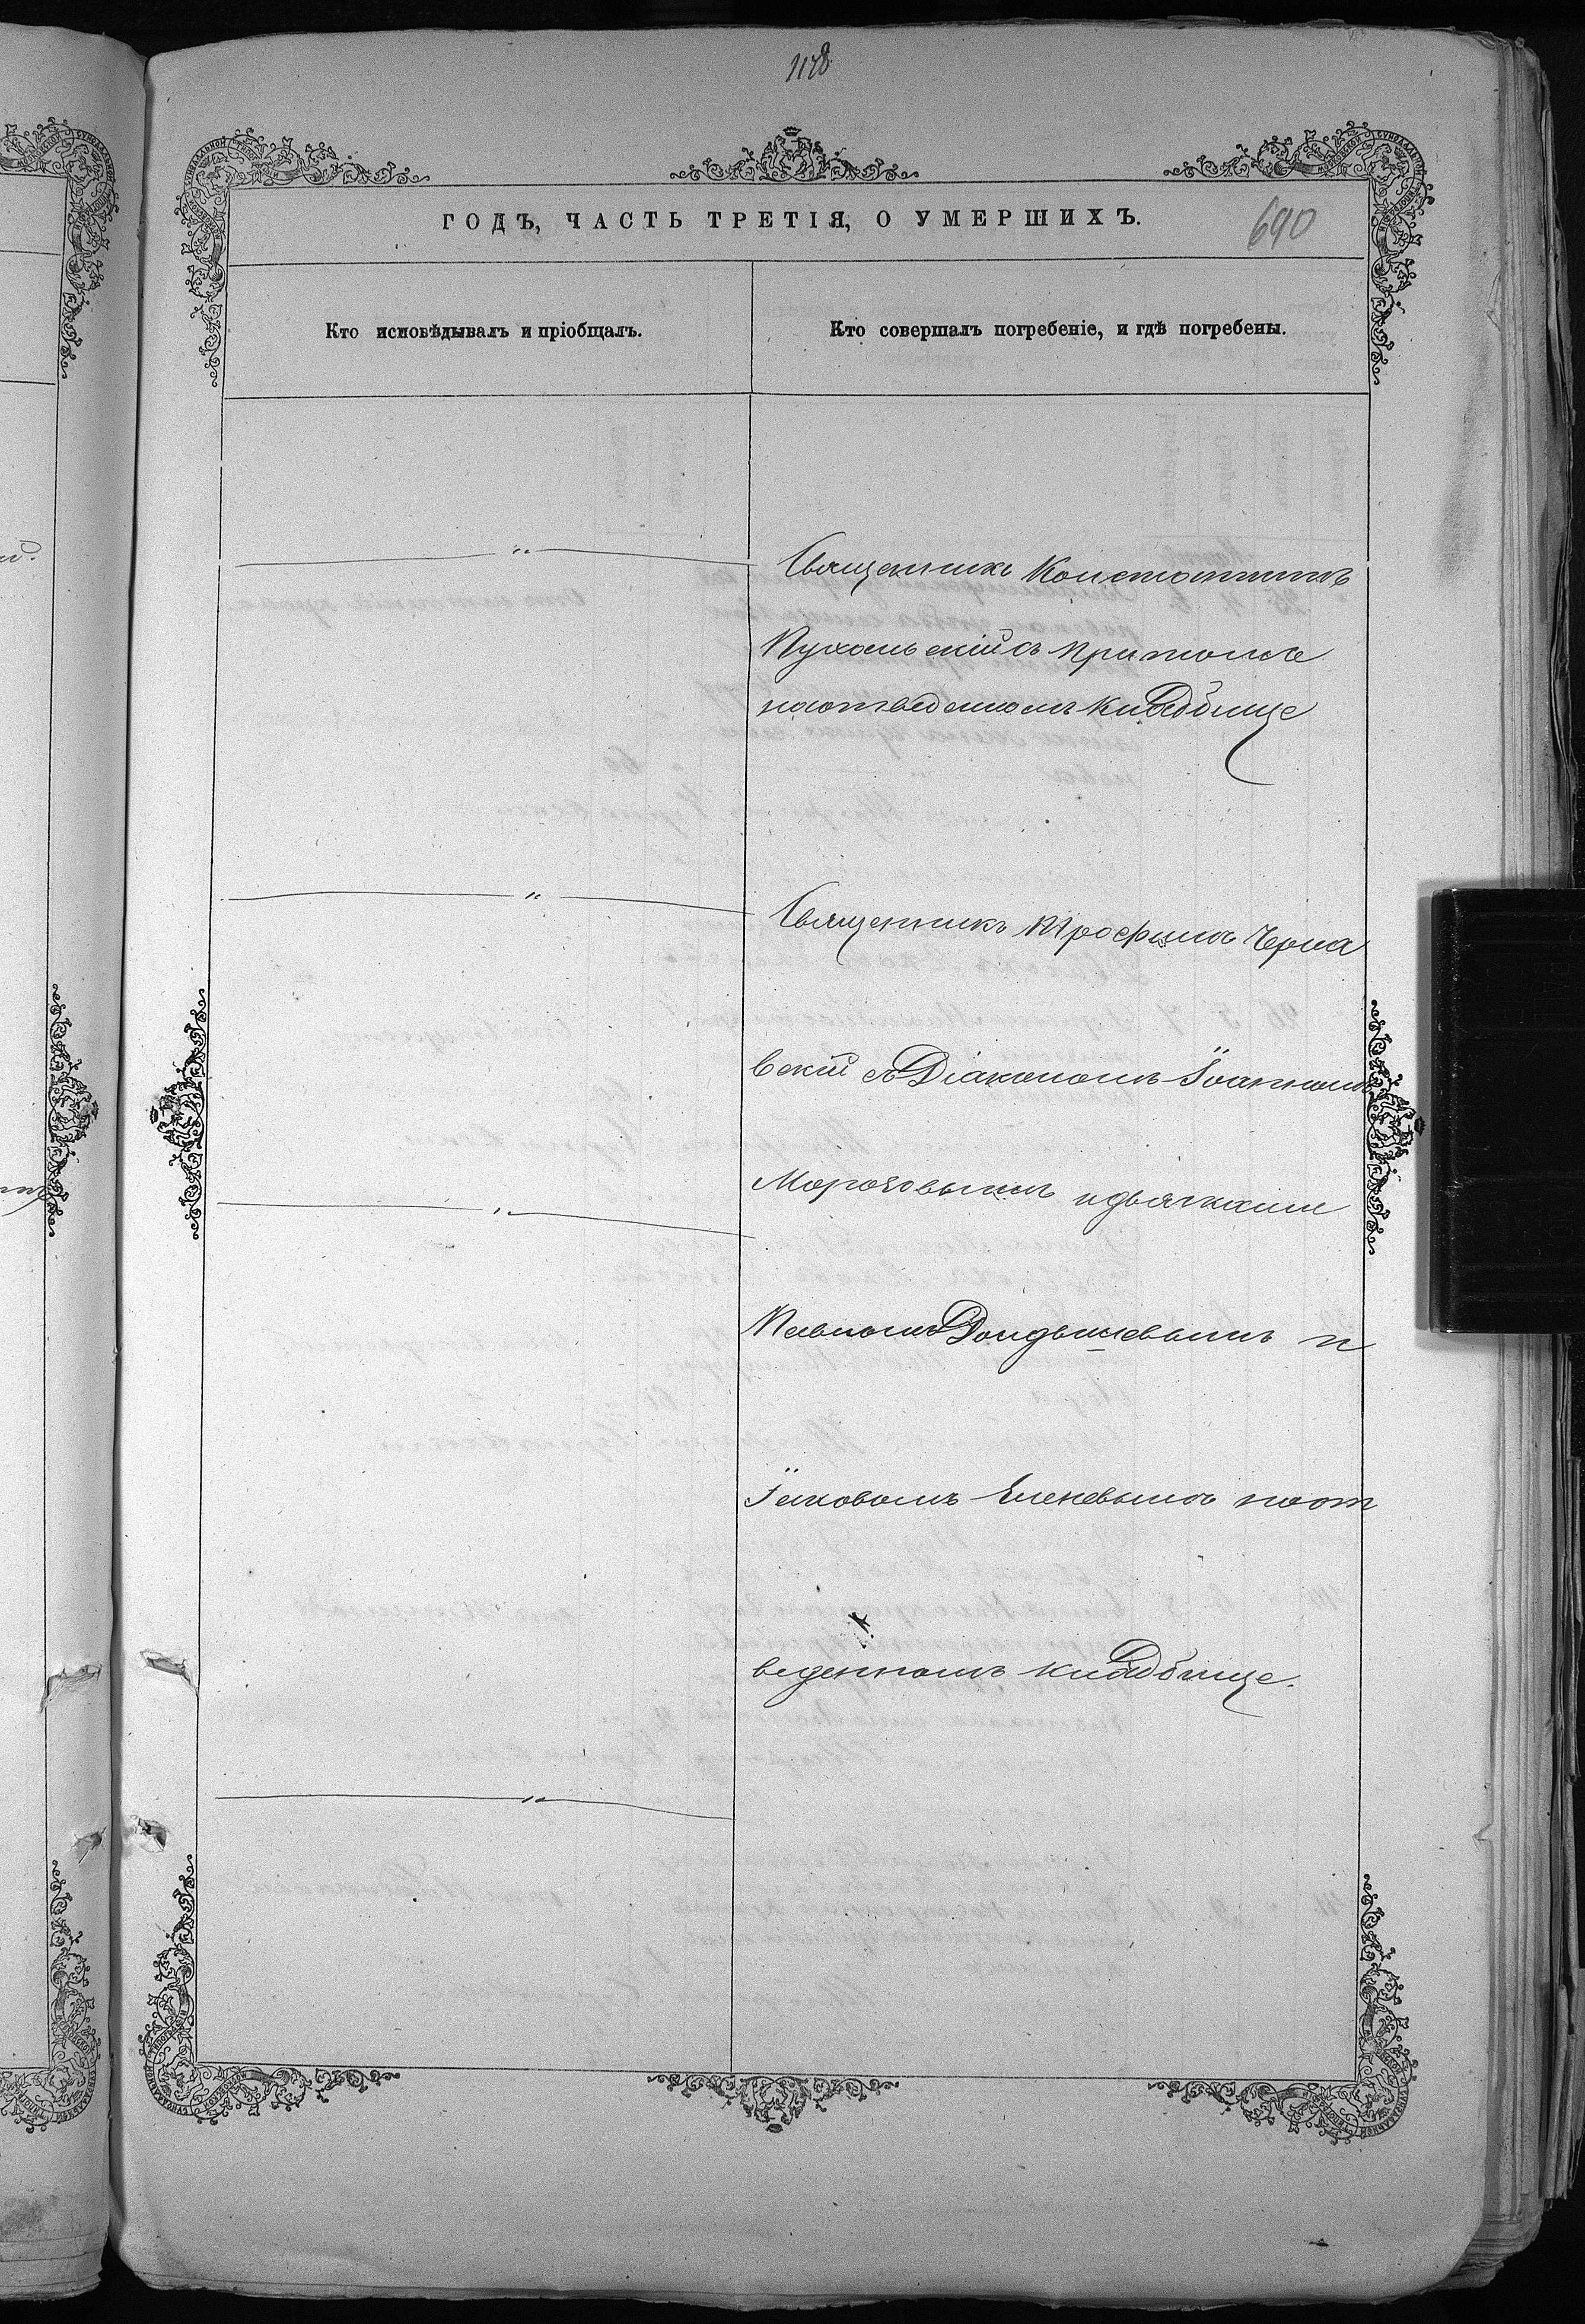 1178
ГОДЪ, ЧАСТЬ ТРЕТІЯ, О УМЕРШИХЪ.
690
Кто исповѣдывалъ и пріобщалъ.
Кто совершалъ погребеніе, и гдѣ погребены.
Священникъ Константинъ
скій съ причтомъ
наотведенномъ кладбище
Священникъ Трофимъ Черна
вскій съ Діакономъ Іоанномъ
Морозовымъ и дьячками
Павломъ и
Іаковомъ наот
веденномъ кладбище.